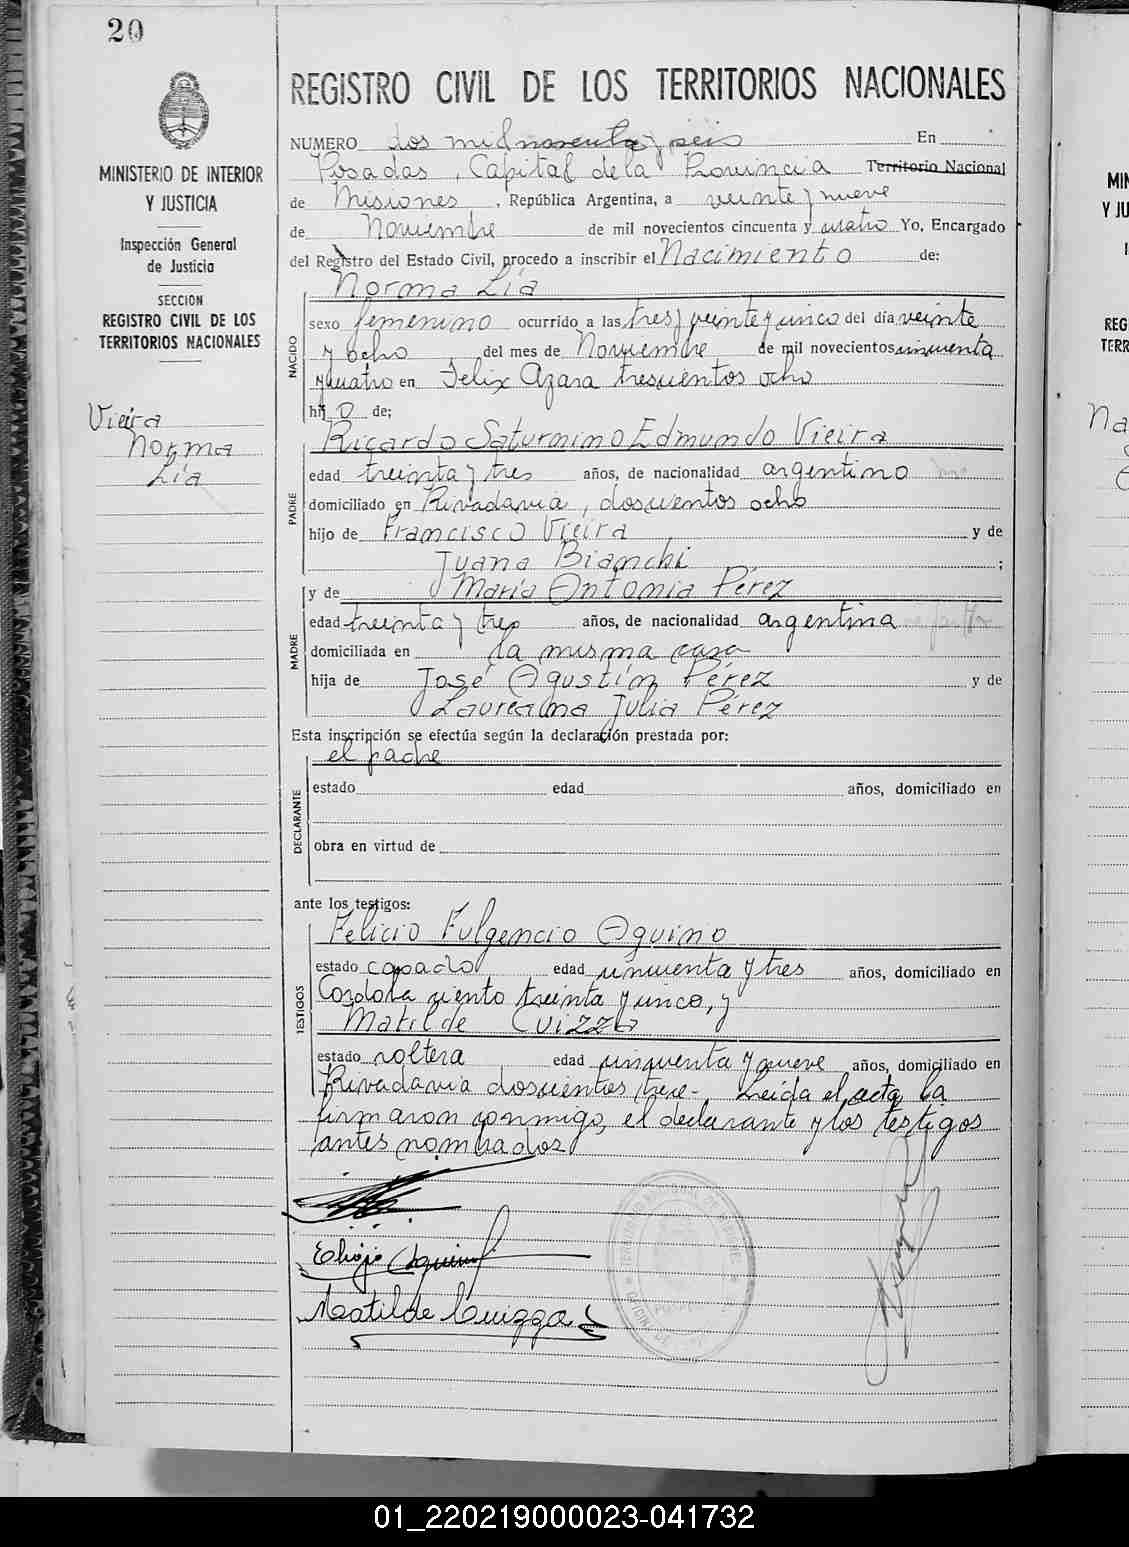 20
MINISTERIO DE INTERIOR
Y JUSTICIA
Inspección General
de Justicia
SECCION
REGISTRO CIVIL DE LOS
TERRITORIOS NACIONALES
Vieira
Norma
Lía
REGISTRO CIVIL DE LOS TERRITORIOS NACIONALES
NUMERO dos mil noventa y seis En
Posadas, Capital de la Provincia Territorio Nacional
de Misiones, República Argentina, a veinte y nueve
de Noviembre de mil novecientos cincuenta y cuatro Yo, Encargado
del Registro del Estado Civil, procedo a inscribir el Nacimiento de:
NACIDO
Norma Lía
sexo femenino ocurrido a las tres y veinte y cinco del día veinte
y ocho del mes de Noviembre de mil novecientos cincuenta
y cuatro en Felix Azara trescientos ocho
hij a de;
PADRE
Ricardo Saturnino Edmundo Vieira
edad treinta y tres años, de nacionalidad argentino
domiciliado en Rivadavia, doscientos ocho
hijo de Francisco Vieira y de
Juana Bianchi ;
MADRE
y de María Antonia Pérez
edad treinta y tres años, de nacionalidad argentina
domiciliada en la misma casa
hija de José Agustín Pérez y de
Laureana Julia Pérez
Esta inscripción se efectúa según la declaración prestada por:
DECLARANTE
el padre
estado edad años, domiciliado en
obra en virtud de
ante los testigos:
TESTIGOS
Felicio Fulgencio Aquino
estado casado edad cincuenta y tres años, domiciliado en
Cordoba ciento treinta y cinco, y
Matilde Cuizza
estado soltera edad cincuenta y nueve años, domiciliado en
Rivadavia doscientos trece- Leída el acta la
firmaron conmigo, el declarante y los testigos
antes nombrados
Aquino
Matilde Cuizza
MIN
Y JU
REG
TERR
Na
01_220219000023-041732